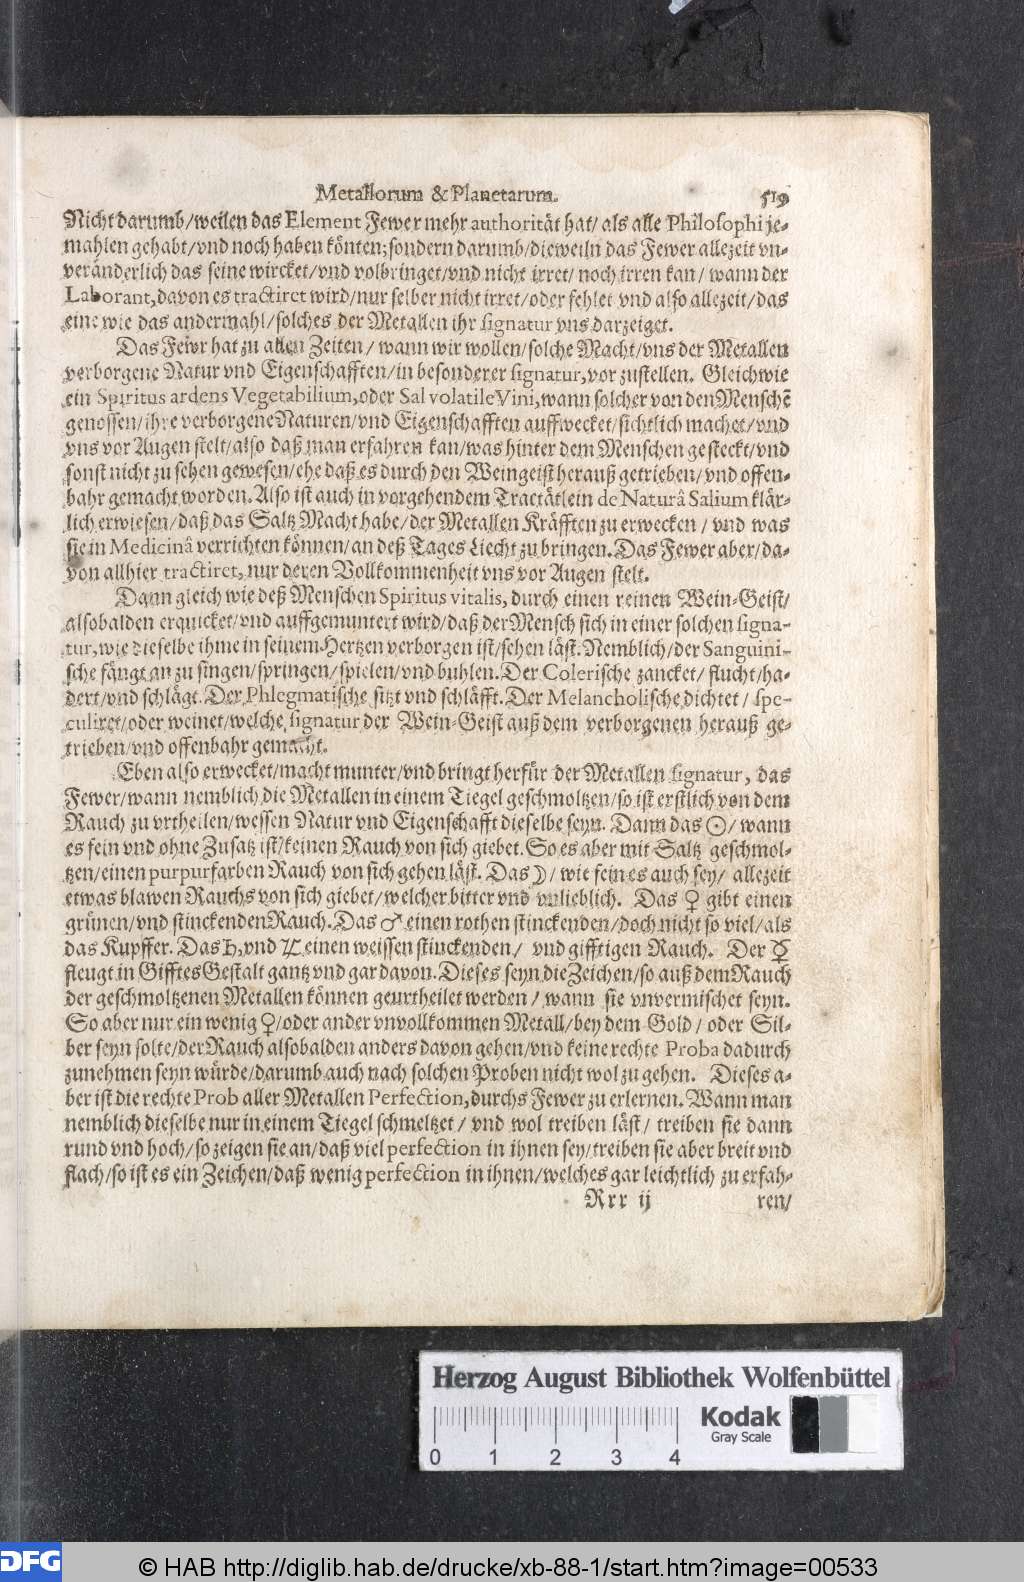 Metallorum & Planetarum. 519
Nicht darumb/weilen das Element Fewer mehr authorität hat/ als alle Philosophi je-
mahlen gehabt/vnd noch haben könten;sondern darumb/dieweiln das Fewer allezeit vn-
veränderlich das seine wircket/vnd volbringet/vnd nicht irret/ noch irren kan/ wann der
Laborant,davon es tractiret wird/nur selber nicht irret/oder fehlet vnd also allezeit/das
eine wie das andermahl/solches der Metallen ihr signatur vns darzeiget.
Das Fewr hat zu allen Zeiten/ wann wir wollen/solche Macht/vns der Metallen
verborgene Natur vnd Eigenschafften/in besonderer signatur,vor zustellen. Gleichwie
ein Spiritus ardens Vegetabilium,oder Sal volatile Vini,wann solcher von den Menschē
genossen/ihre verborgene Naturen/vnd Eigenschafften auffwecket/sichtlich machet/vnd
vns vor Augen stelt/also daß man erfahren kan/was hinter dem Menschen gesteckt/vnd
sonst nicht zu sehen gewesen/ehe daß es durch den Weingeist herauß getrieben/vnd offen-
bahr gemacht worden. Also ist auch in vorgehendem Tractätlein de Naturâ Salium klär-
lich erwiesen/daß das Saltz Macht habe/der Metallen Kräfften zu erwecken/ vnd was
sie in Medicinâ verrichten können/an deß Tages Liecht zu bringen. Das Fewer aber/da-
von allhier tractiret, nur deren Vollkommenheit vns vor Augen stelt.
Dann gleich wie deß Menschen Spiritus vitalis, durch einen reinen Wein-Geist/
alsobalden erquicket/vnd auffgemuntert wird/daß der Mensch sich in einer solchen signa-
tur,wie dieselbe ihme in seinem Hertzen verborgen ist/sehen läst. Nemblich/der Sanguini-
sche fängt an zu singen/springen/spielen/vnd buhlen. Der Colerische zancket/ flucht/ha-
dert/vnd schlägt. Der Phlegmatische sitzt vnd schläfft. Der Melancholische dichtet/ spe-
culiret/oder weinet/welche signatur der Wein-Geist auß dem verborgenen herauß ge-
trieben/vnd offenbahr gemacht.
Eben also erwecket/macht munter/vnd bringt herfür der Metallen signatur, das
Fewer/wann nemblich die Metallen in einem Tiegel geschmoltzen/so ist erstlich von dem
Rauch zu vrtheilen/wessen Natur vnd Eigenschafft dieselbe seyn. Dann das ☉/ wann
es fein vnd ohne Zusatz ist/keinen Rauch von sich giebet. So es aber mit Saltz geschmol-
tzen/einen purpurfarben Rauch von sich gehen läst. Das ☽/ wie fein es auch sey/ allezeit
etwas blawen Rauchs von sich giebet/welcher bitter vnd vnlieblich. Das ♀ gibt einen
grünen/vnd stinckenden Rauch. Das ♂ einen rothen stinckenden/doch nicht so viel/als
das Kupffer. Das ♄,vnd ♃ einen weissen stinckenden/ vnd gifftigen Rauch. Der ☿
fleugt in Gifftes Gestalt gantz vnd gar davon. Dieses seyn die Zeichen/so auß dem Rauch
der geschmoltzenen Metallen können geurtheilet werden/ wann sie vnvermischet seyn.
So aber nur ein wenig ♀/oder ander vnvollkommen Metall/bey dem Gold/ oder Sil-
ber seyn solte/der Rauch alsobalden anders davon gehen/vnd keine rechte Proba dadurch
zunehmen seyn würde/darumb auch nach solchen Proben nicht wol zu gehen. Dieses a-
ber ist die rechte Prob aller Metallen Perfection,durchs Fewer zu erlernen. Wann man
nemblich dieselbe nur in einem Tiegel schmeltzet/ vnd wol treiben läst/ treiben sie dann
rund vnd hoch/so zeigen sie an/daß viel perfection in ihnen sey/treiben sie aber breit vnd
flach/so ist es ein Zeichen/daß wenig perfection in ihnen/welches gar leichtlich zu erfah-
Rrr ij ren/
Herzog August Bibliothek Wolfenbüttel
Kodak
Gray Scale
0 1 2 3 4
DFG
© HAB http://diglib.hab.de/drucke/xb-88-1/start.htm?image=00533